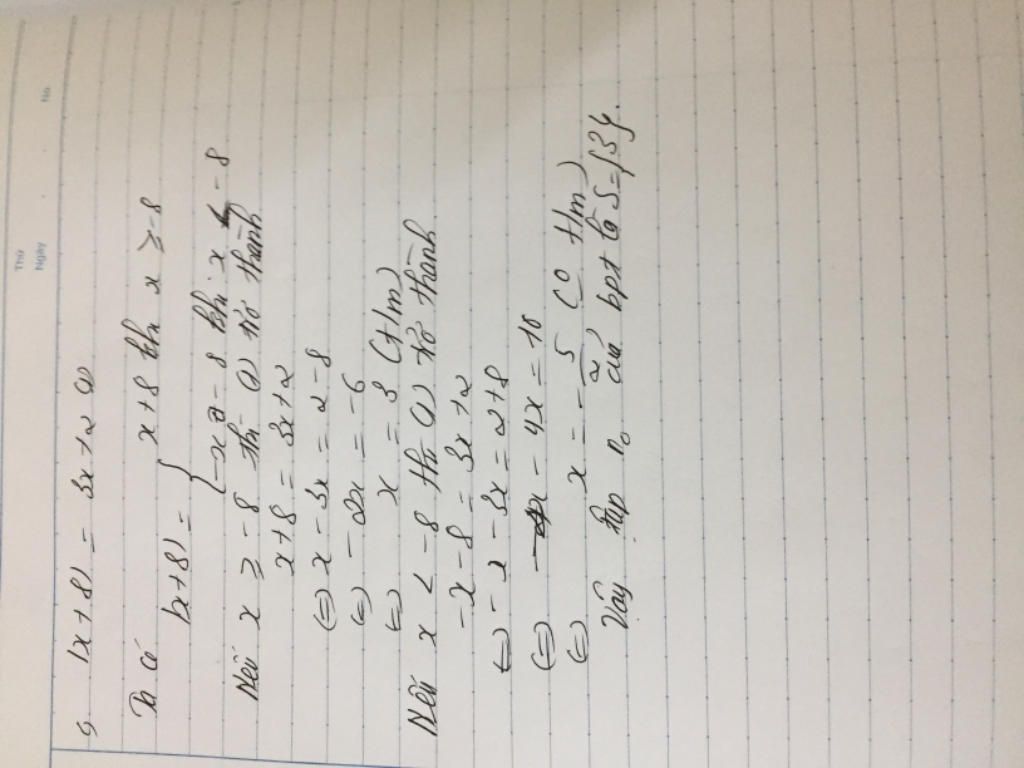 Thứ
Ngày
No
c, |x+8| = 3x+2 (1)
Ta có
|x+8| = { x+8 khi x ≥ -8
-x - 8 khi x < -8
Nếu x ≥ -8 thì (1) trở thành
x+8 = 3x+2
(=) x - 3x = 2 - 8
(=) - 2x = -6
(=) x = 3 (t/m)
Nếu x < -8 thì (1) trở thành
-x - 8 = 3x+2
(=) - x - 3x = 2+8
(=) - 4x = 10
(=) x = -5/2 (0 t/m)
Vậy tập no của bpt là S={3}.